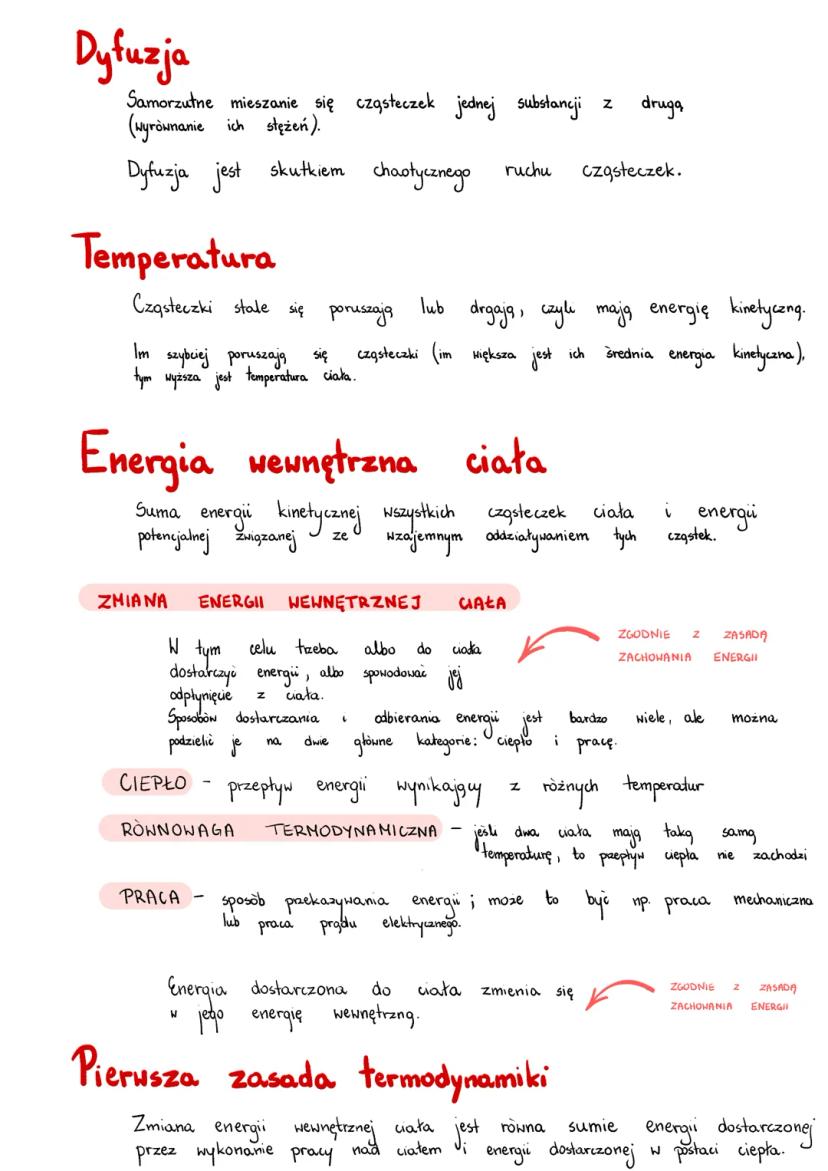 Dyfuzja
Samorzutne mieszanie się cząsteczek jednej substancji z drugą
(wyrównanie ich stężeń).
Dyfuzja jest skutkiem chaotycznego ruchu cząsteczek.
Temperatura
Cząsteczki stale się poruszają lub drgają, czyli mają energię kinetyczną.
Im szybciej poruszają się cząsteczki (im większa jest ich średnia energia kinetyczna),
tym wyższa jest temperatura ciała.
Energia wewnętrzna ciała
Suma energii kinetycznej wszystkich cząsteczek ciała i energii
potencjalnej związanej ze wzajemnym oddziaływaniem tych cząstek.
ZMIANA ENERGII WEWNĘTRZNEJ CIAŁA
W tym celu trzeba albo do ciała
dostarczyć energii, albo spowodować jej
odpłynięcie z ciała.
ZGODNIE Z ZASADĄ
ZACHOWANIA ENERGII
Sposobów dostarczania i odbierania energii jest bardzo wiele, ale można
podzielić je na dwie główne kategorie: ciepło i pracę.
CIEPŁO - przepływ energii wynikający z różnych temperatur
RÓWNOWAGA TERMODYNAMICZNA - jeśli dwa ciała mają taką samą
temperaturę, to przepływ ciepła nie zachodzi
PRACA - sposób przekazywania energii; może to być np. praca mechaniczna
lub praca prądu elektrycznego.
Energia dostarczona do ciała zmienia się
w jego energię wewnętrzną.
ZGODNIE Z ZASADĄ
ZACHOWANIA ENERGII
Pierwsza zasada termodynamiki
Zmiana energii wewnętrznej ciała jest równa sumie energii dostarczonej
przez wykonanie pracy nad ciałem i energii dostarczonej w postaci ciepła.